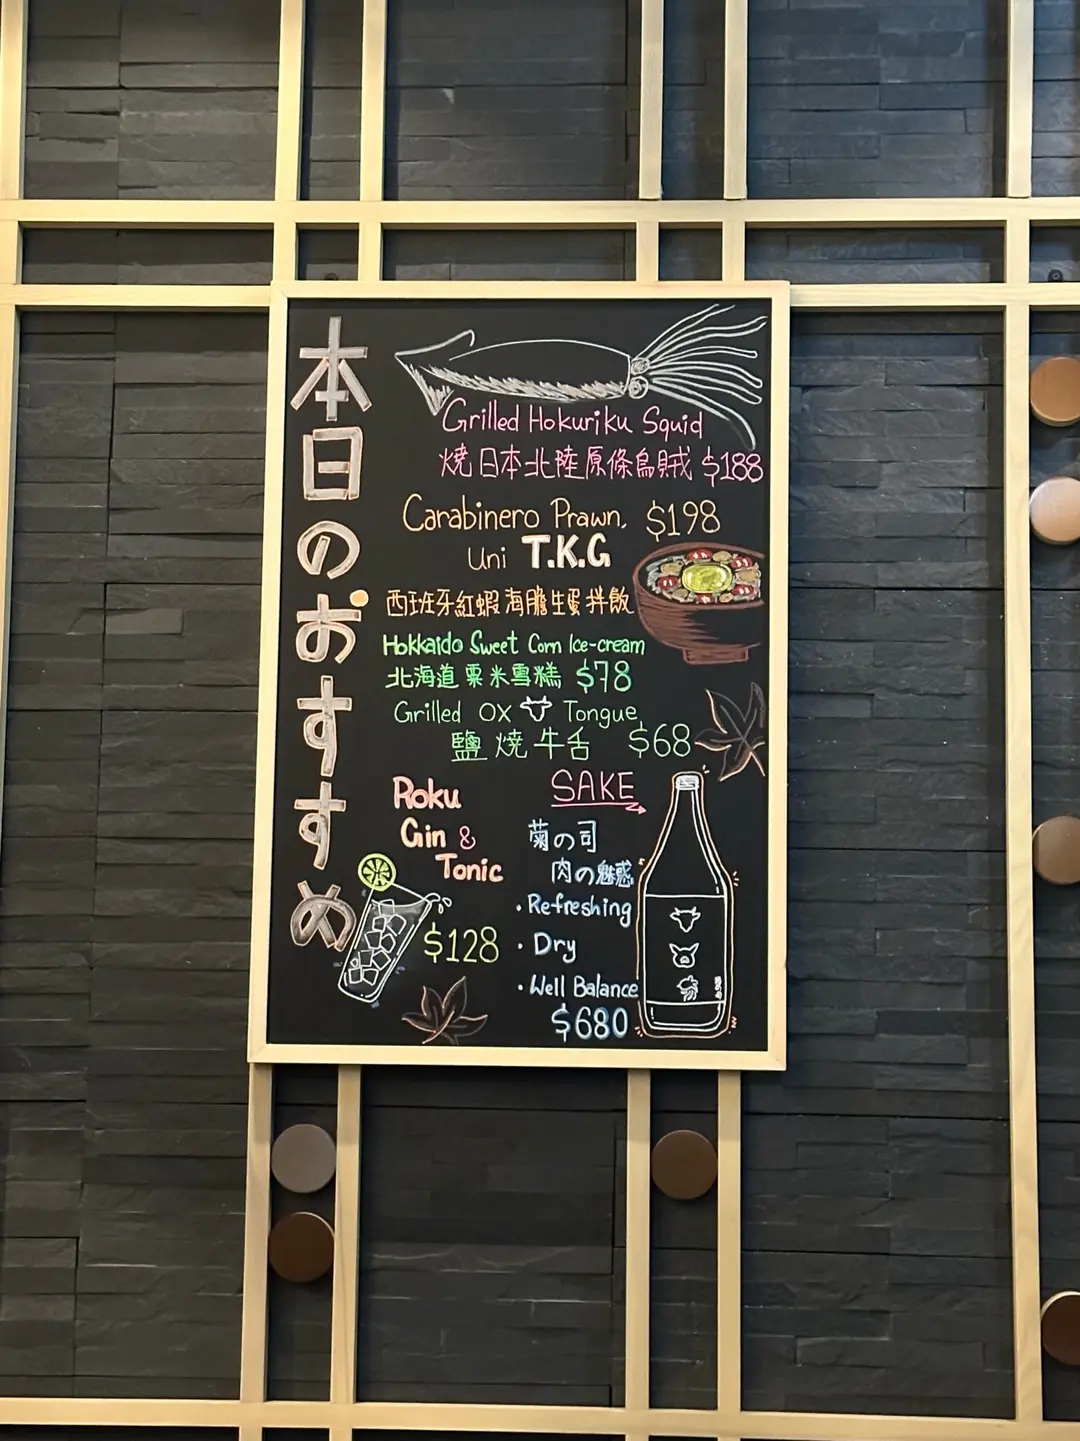 本日のおすすめ
Grilled Hokuriku Squid
燒日本北陸原條烏賊 $188
Carabinero Prawn, $198
Uni T.K.G
西班牙紅蝦海膽生蛋拌飯
Hokkaido Sweet Corn Ice-cream
北海道粟米雪糕 $78
Grilled OX Tongue
鹽燒牛舌 $68
Roku
Gin &
Tonic
$128
SAKE
菊の司
肉の魅惑
・Refreshing
・Dry
・Well Balance
$680